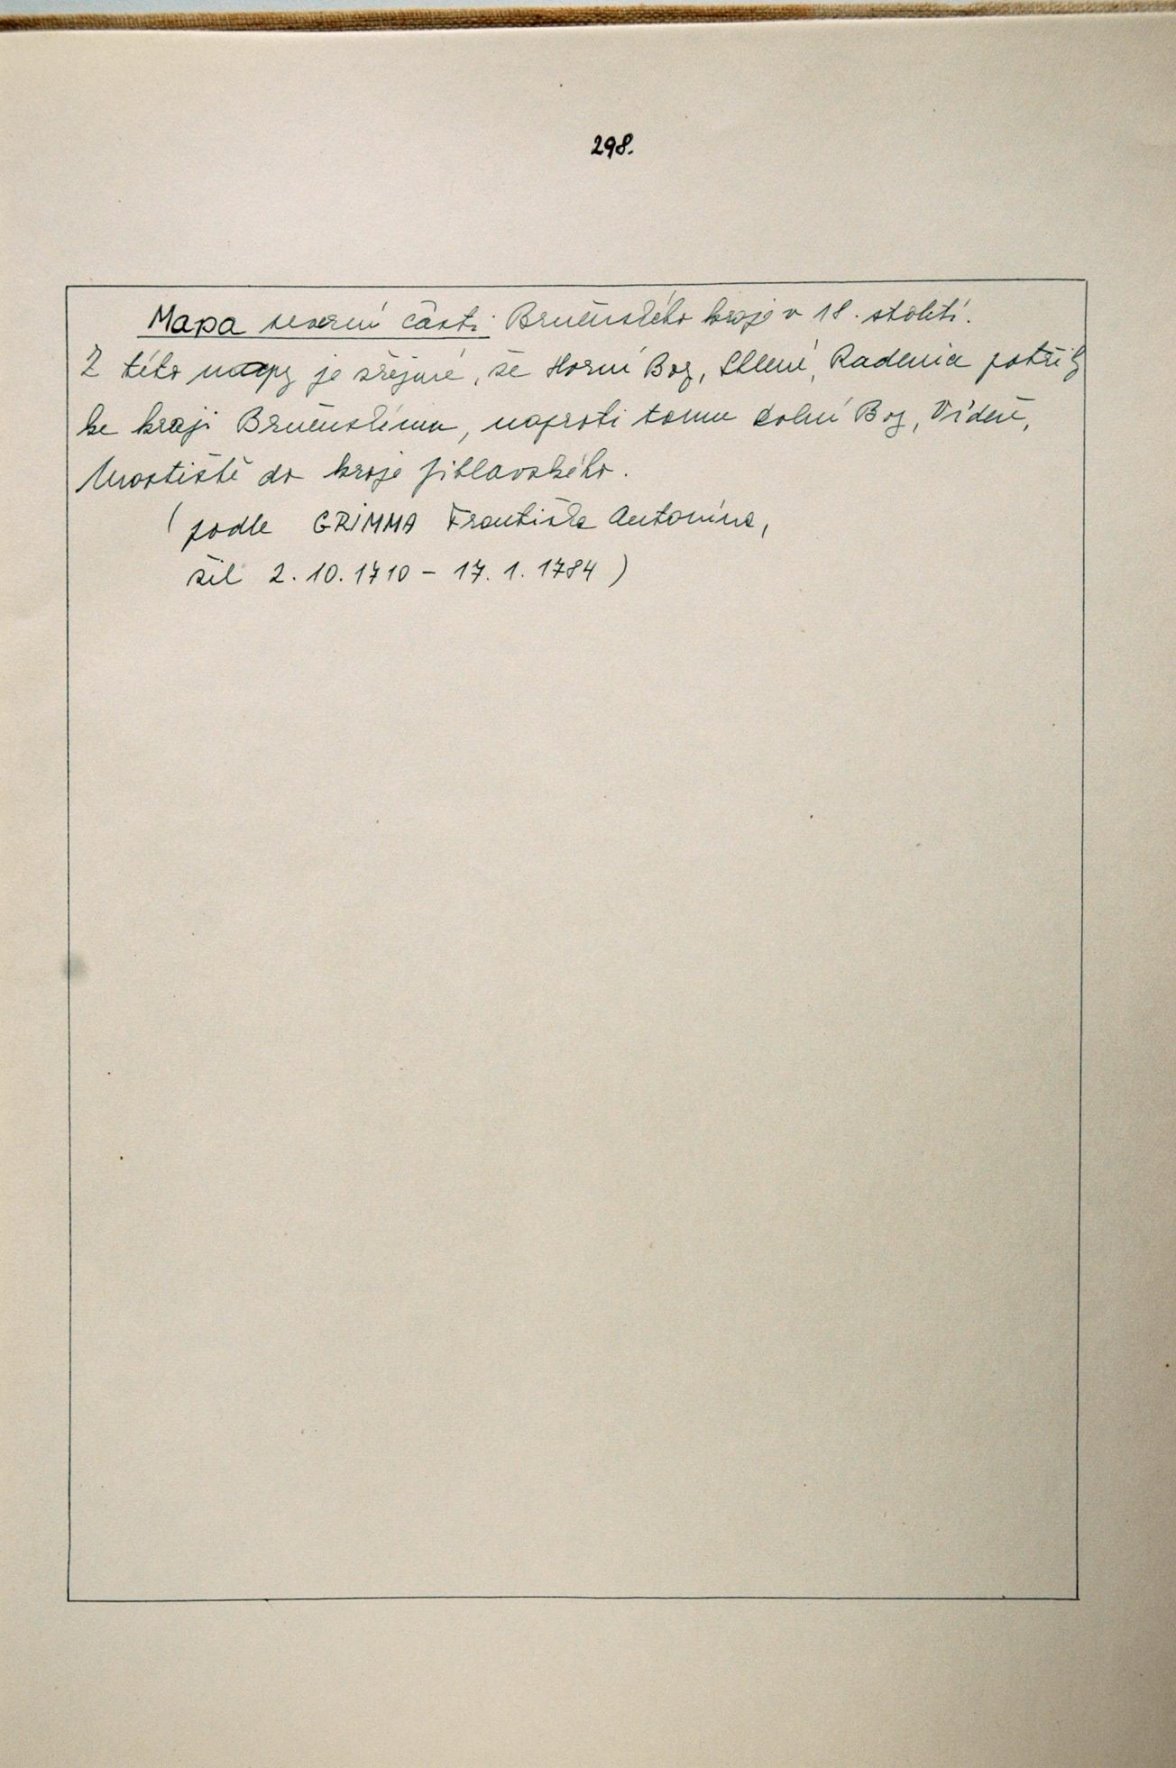 298.
Mapa severní části Brněnského kraje v 18. století.
Z této mapy je zřejmé, že Horní Bory, Sklené, Radenice patřily
ke kraji Brněnskému, naproti tomu dolní Bory, Vídeň,
Mostiště do kraje jihlavského.
(podle GRIMMA Františka Antonína,
žil 2. 10. 1710 - 17. 1. 1784)